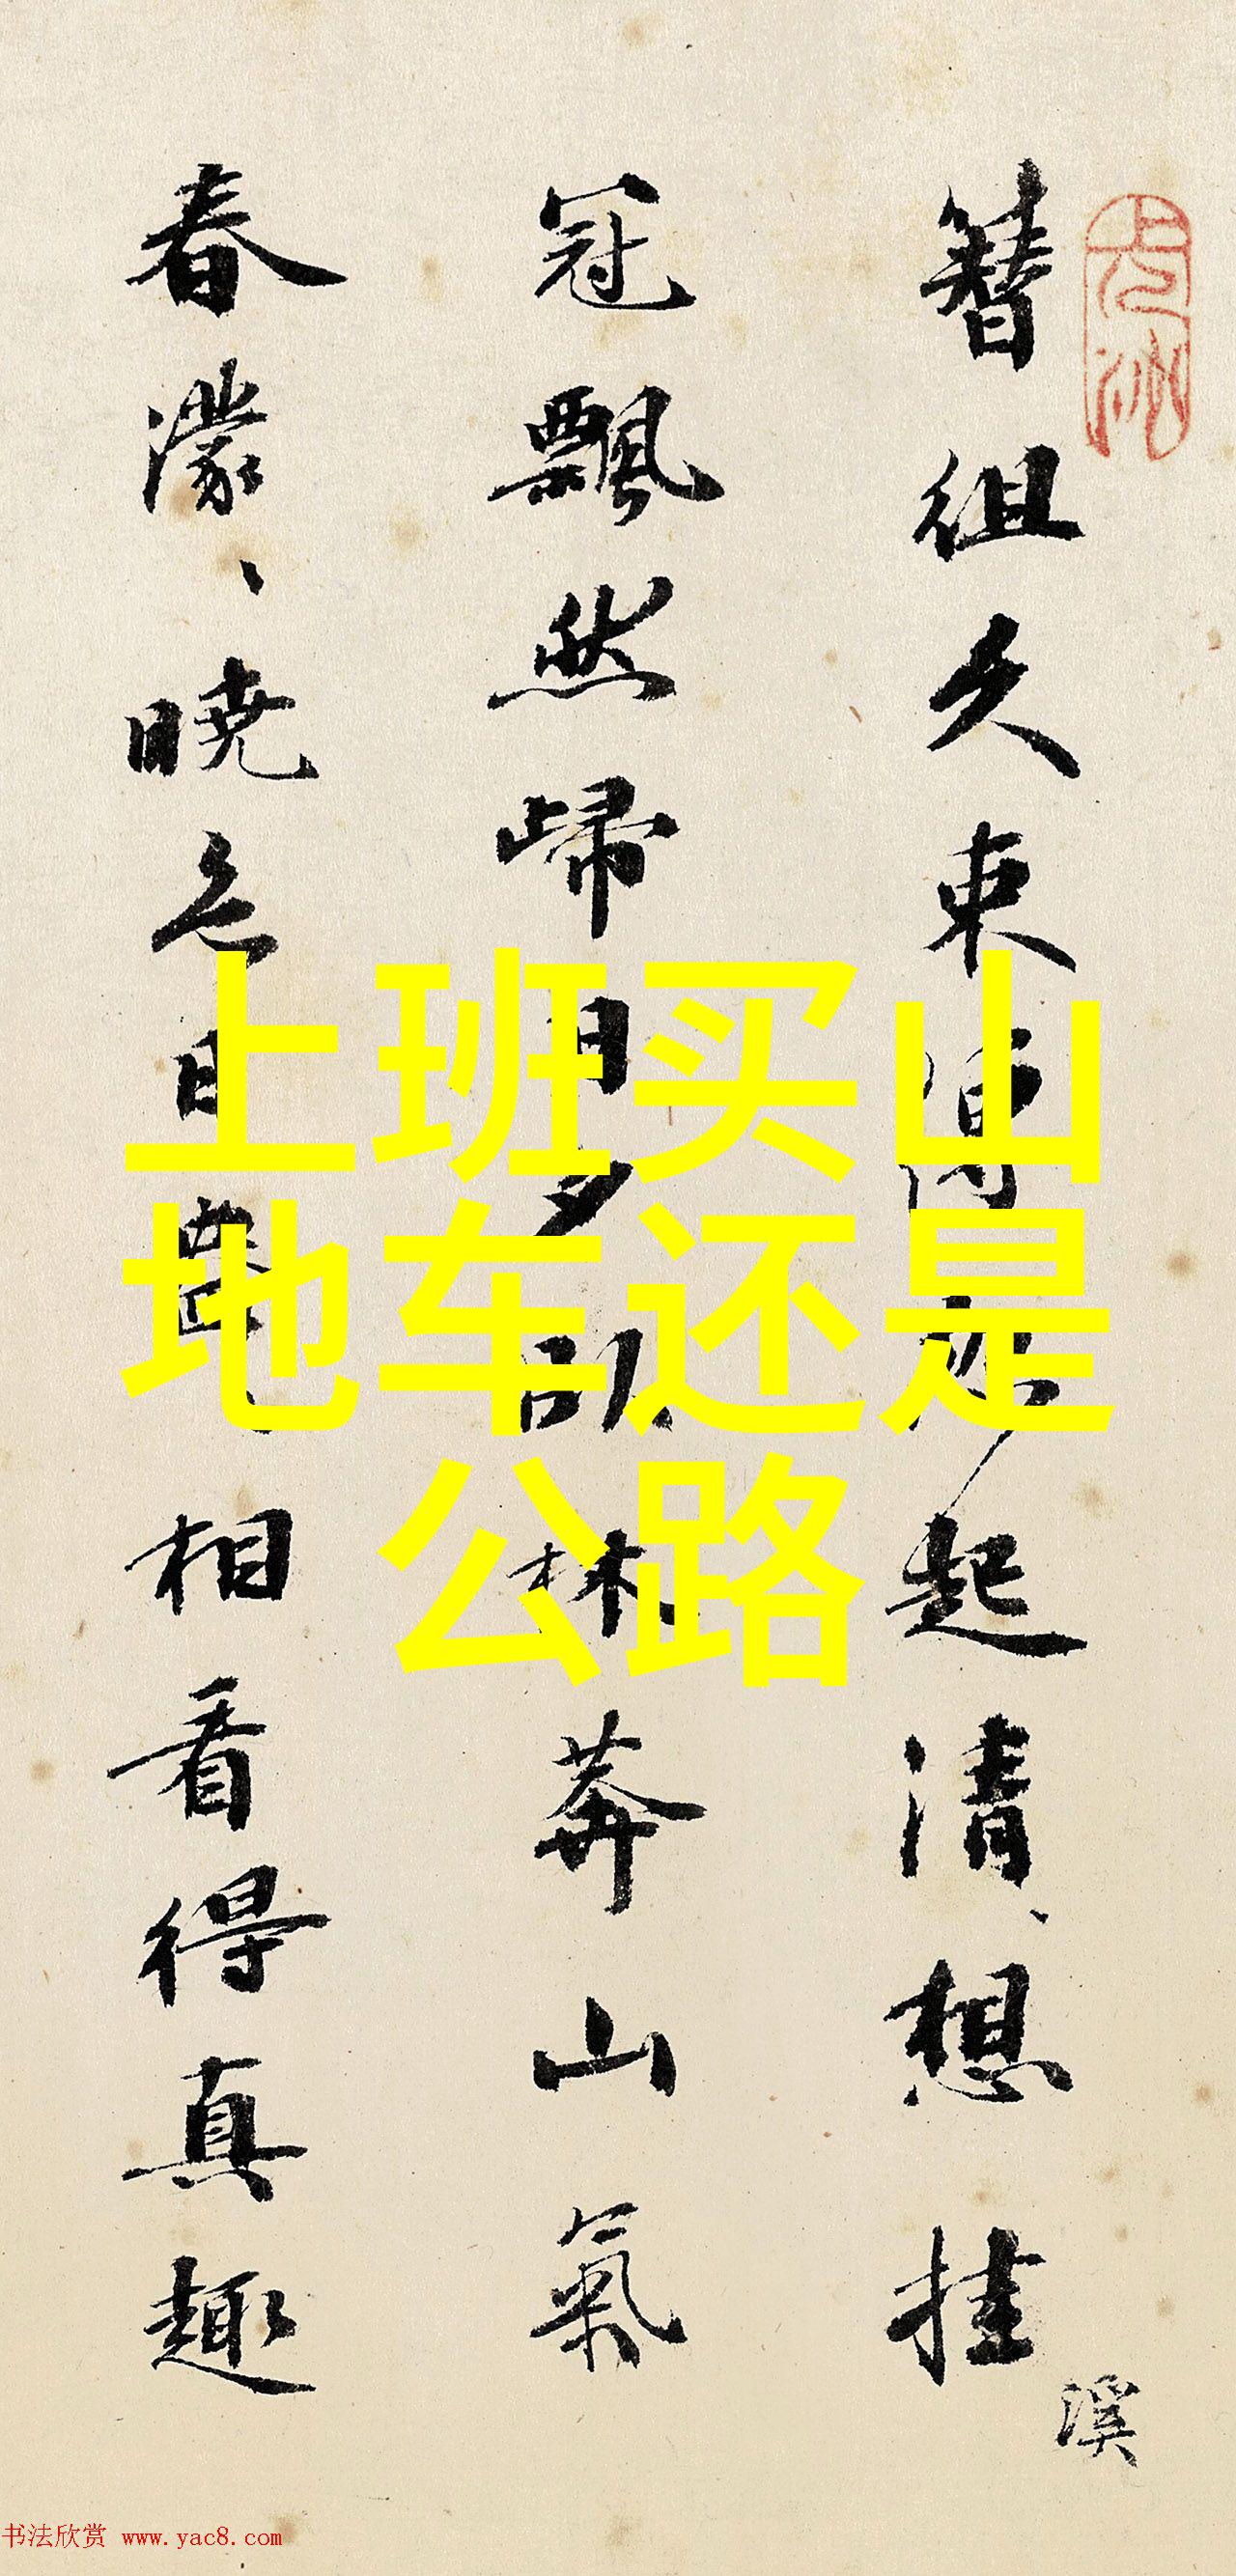 簪組久束起清想挂
溪
冠飄然歸日夕林莽山氣
春濛、曉色日相看得真趣
上班买山
地车还是
公路
书法欣赏 www.yac8.com